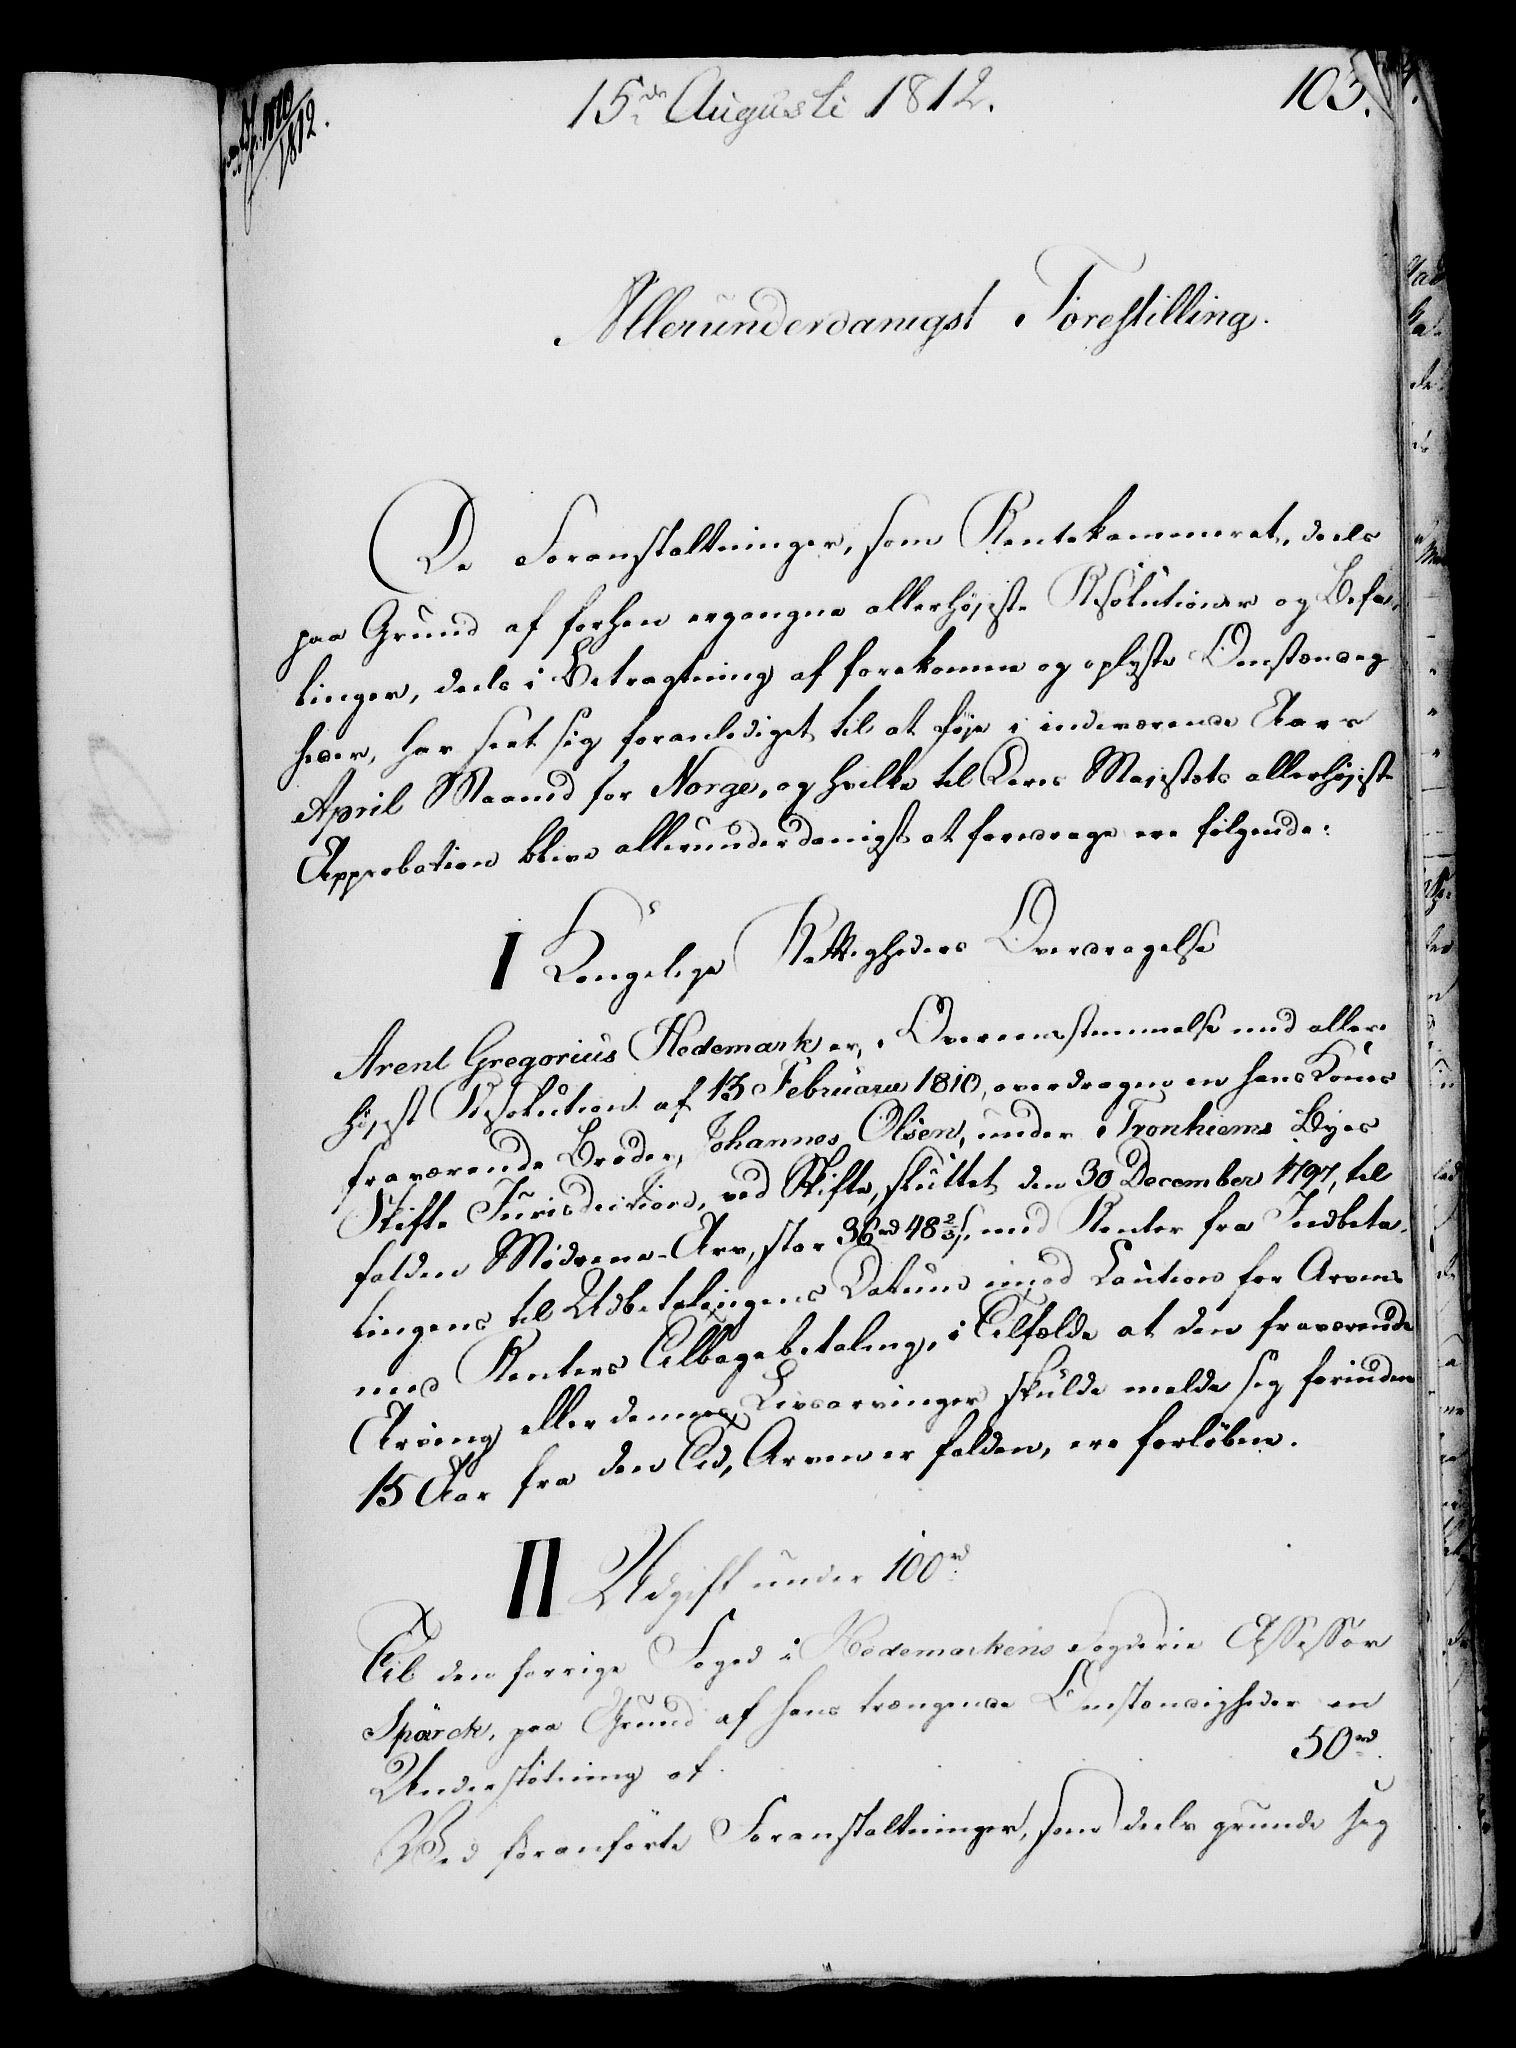 15de Augusti 1812.
103.
1812.
Allerunderdanigst Forestilling.
De Foranstaltninger, som Rentekammeret, deels
paa Grund af forhen ergangne allerhøjeste Resolutioner og Befa-
linger, deels i Betragtning af forekomne og oplyste Omstændig
heder, har seet sig foranlediget til at føje i indeværende Aars
April Maaned for Norge, og hvilke til Deres Majestæts allerhøjeste
Approbation blive allerunderdanigst at foredrage ere følgende:
I Kongelige Rettigheders Overdragelse
Arent Gregorius Hedemark er, i Overeensstemmelse med aller-
højest Resolution af 13 Februarii 1810, overdragen en hans Kones
fraværende Broder, Johannes Olsen, under Tronhiems Byes
Skifte Jurisdiction, ved Skifte, sluttet den 30 December 1797, til
falden Mødrene-Arv, stor 36rd 48⅔s. med Renter fra Indbeta-
lingens til Udbetalingens Datum imod Caution for Arvens
med Renters Tilbagebetaling, i Tilfælde at den fraværende
Arving eller dennes Livsarvinger skulde melde sig forinden
15 Aar fra den Tid, Arven er falden, ere forløbne.
II Udgift under 100rd
Til den forrige Foged i Hedemarkens Fogderie Assessor
Spärck, paa Grund af hans trængende Omstændigheder en
Understøtning af 50rd.
Ved foranførte Foranstaltninger, som deels grunde sig